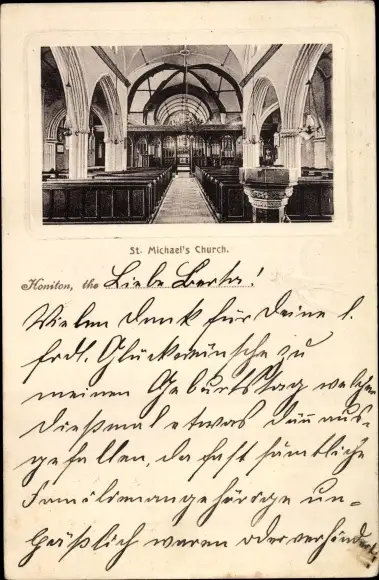 St. Michael's Church.
Honiton, the Liebe Berta!
Vielen Dank für Deine l.
frdl. Glückwünsche zu
meinen Geburtstag welcher
dießmal etwas dünn aus-
gefallen, da fast sämtliche
Familienangehörige un-
päßlich waren oder verhindert